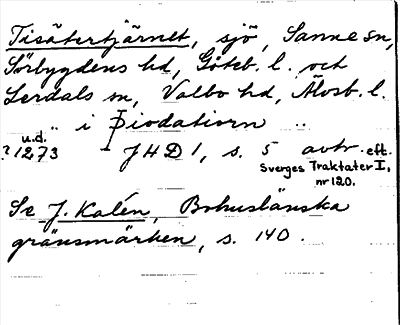 Tisätertjärnet, sjö, Sanne sn,
Sörbygdens hd, Göteb. l. och
Lerdals sn, Valbo hd, Älvsb. l.
" i Þiodatiorn "
u.d.
? 1273 - JHD 1, s. 5 avtr. eft.
Sverges Traktater I,
nr 120.
Se J. Kalén, Bohuslänska
gränsmärken, s. 140.